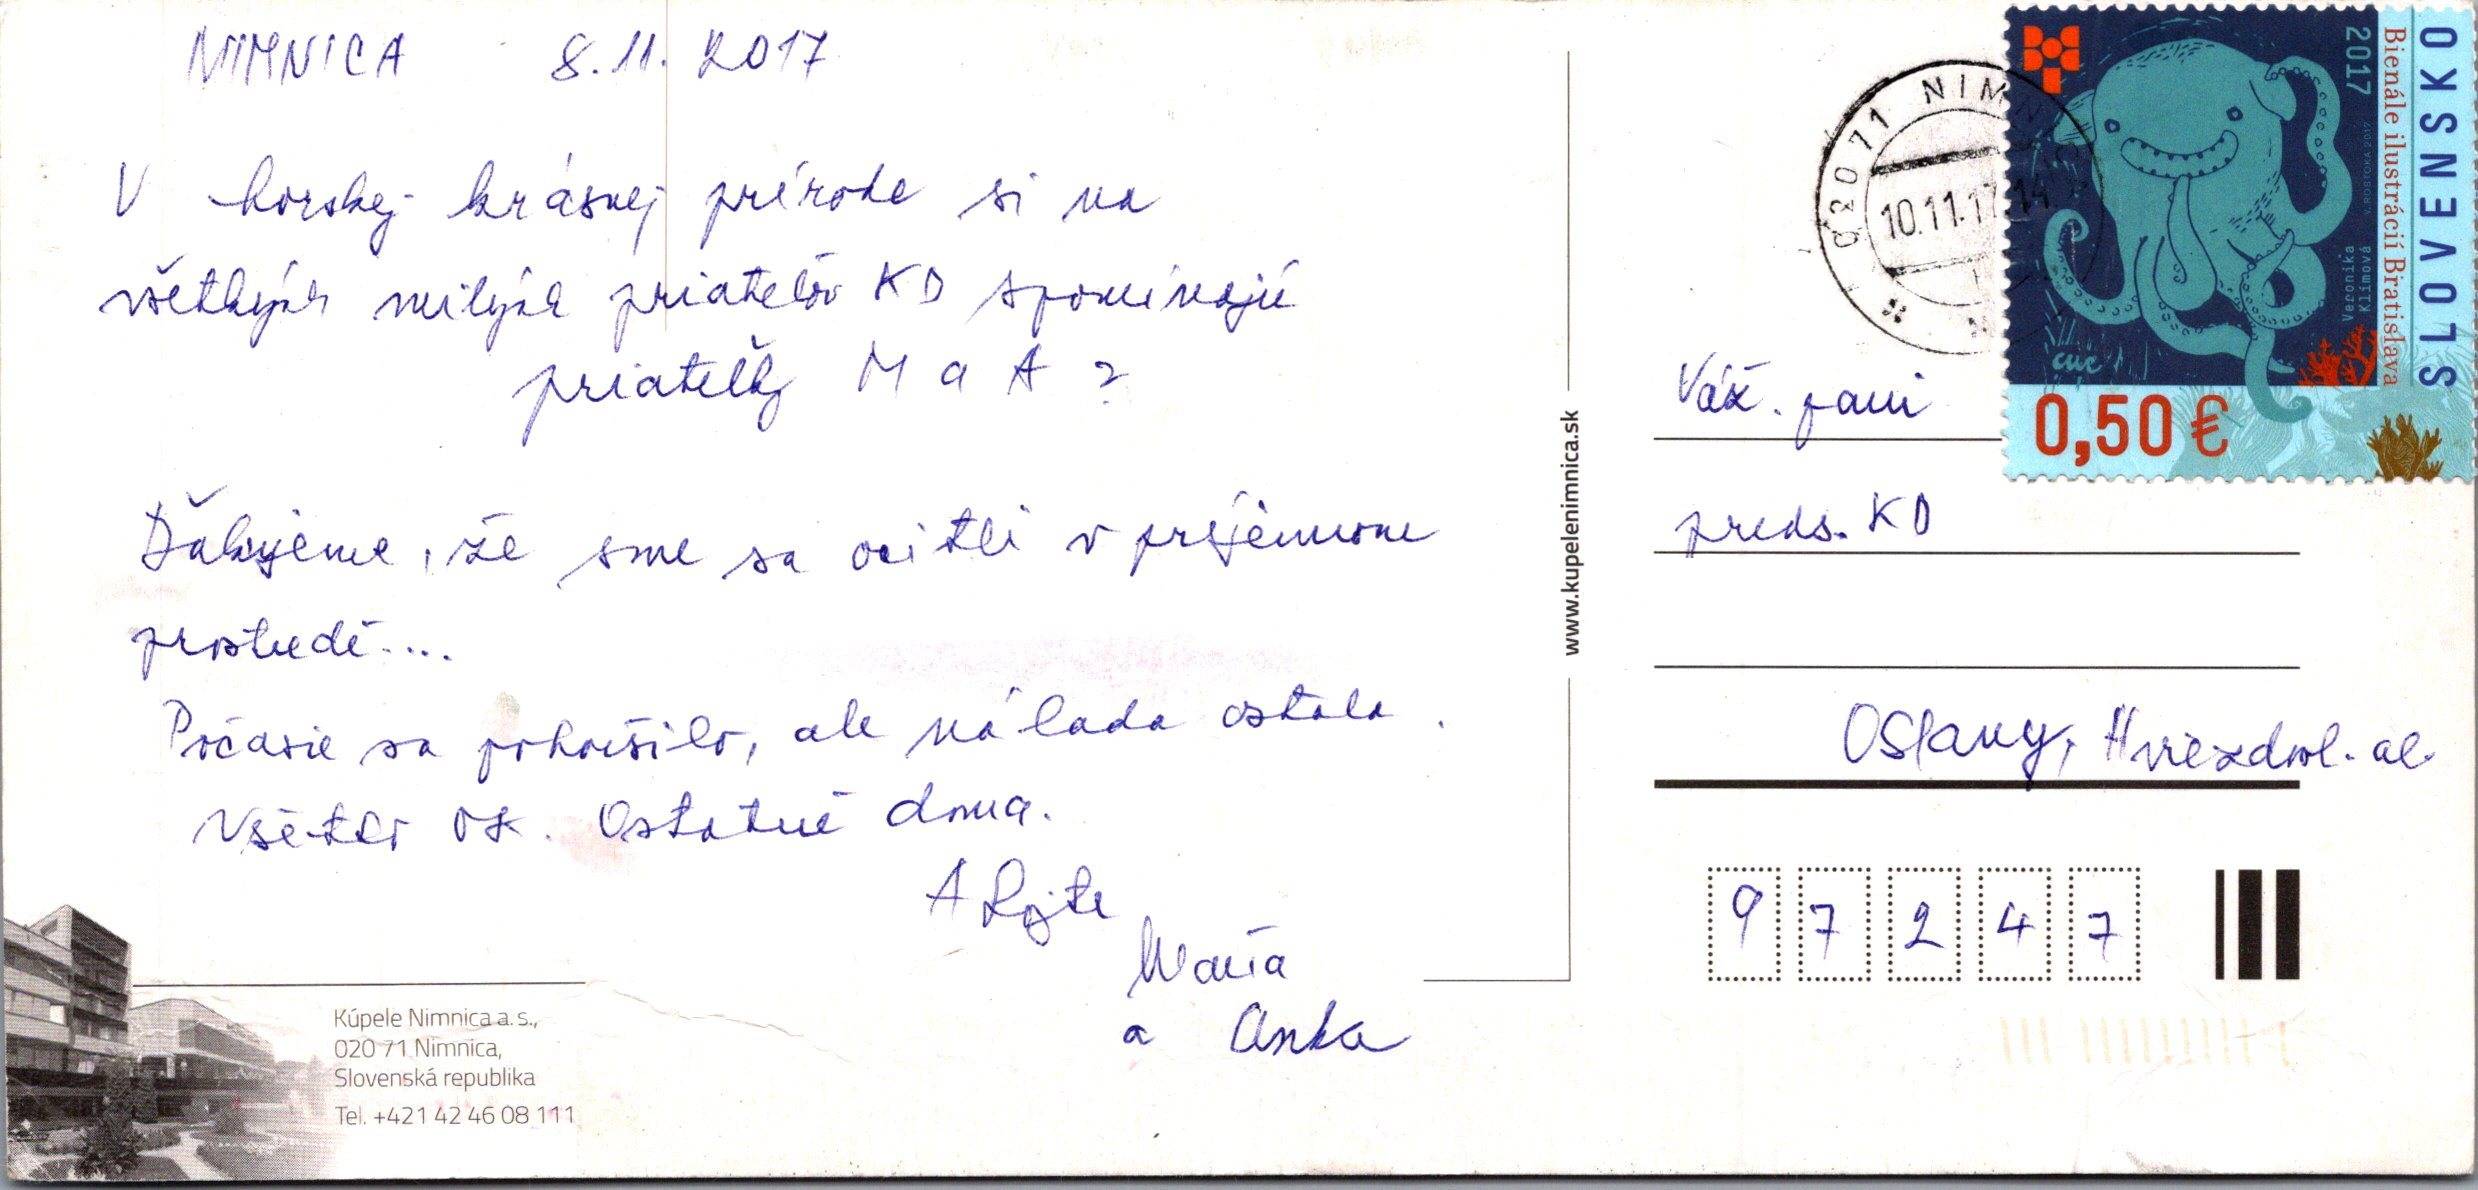 NIMNICA 8.11.2017
V horskej krásnej prírode si na
všetkých milých priateľov KD spomínajú
priateľky M a A ?
Ďakujeme, že sme sa ocitli v príjemnom
prostredí....
Počasie sa pohoršilo, ale nálada ostala.
Všetko OK. Ostatné doma.
A
Mária
a Anka
Kúpele Nimnica a.s.,
020 71 Nimnica,
Slovenská republika
Tel. +421 42 46 08 111
www.kupelenimnica.sk
020 71 NIMNICA
10.11.17.14
2017
Bienále ilustrácií Bratislava
SLOVENSKO
Veronika
Klímová
V. ROSTOKA 2017
CUC
0,50 €
Váž. pani
preds. KD
Oslany, Hviezdosl. al.
97247